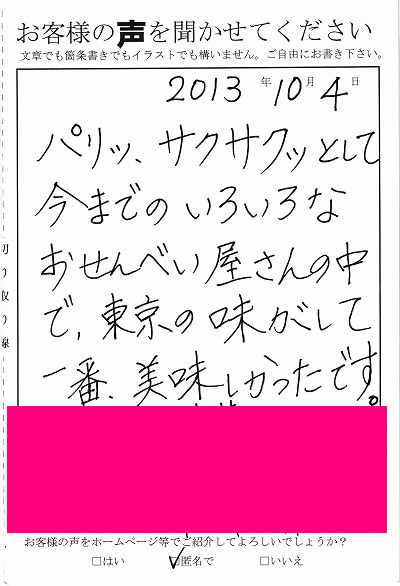 お客様の声を聞かせてください
文章でも箇条書きでもイラストでも構いません。ご自由にお書き下さい。
2013年10月4日
パリッ、サクサクッとして
今までのいろいろな
おせんべい屋さんの中
で、東京の味がして
一番、美味しかったです。
切り取り線
お客様の声をホームページ等でご紹介してよろしいでしょうか？
□はい ☑匿名で □いいえ